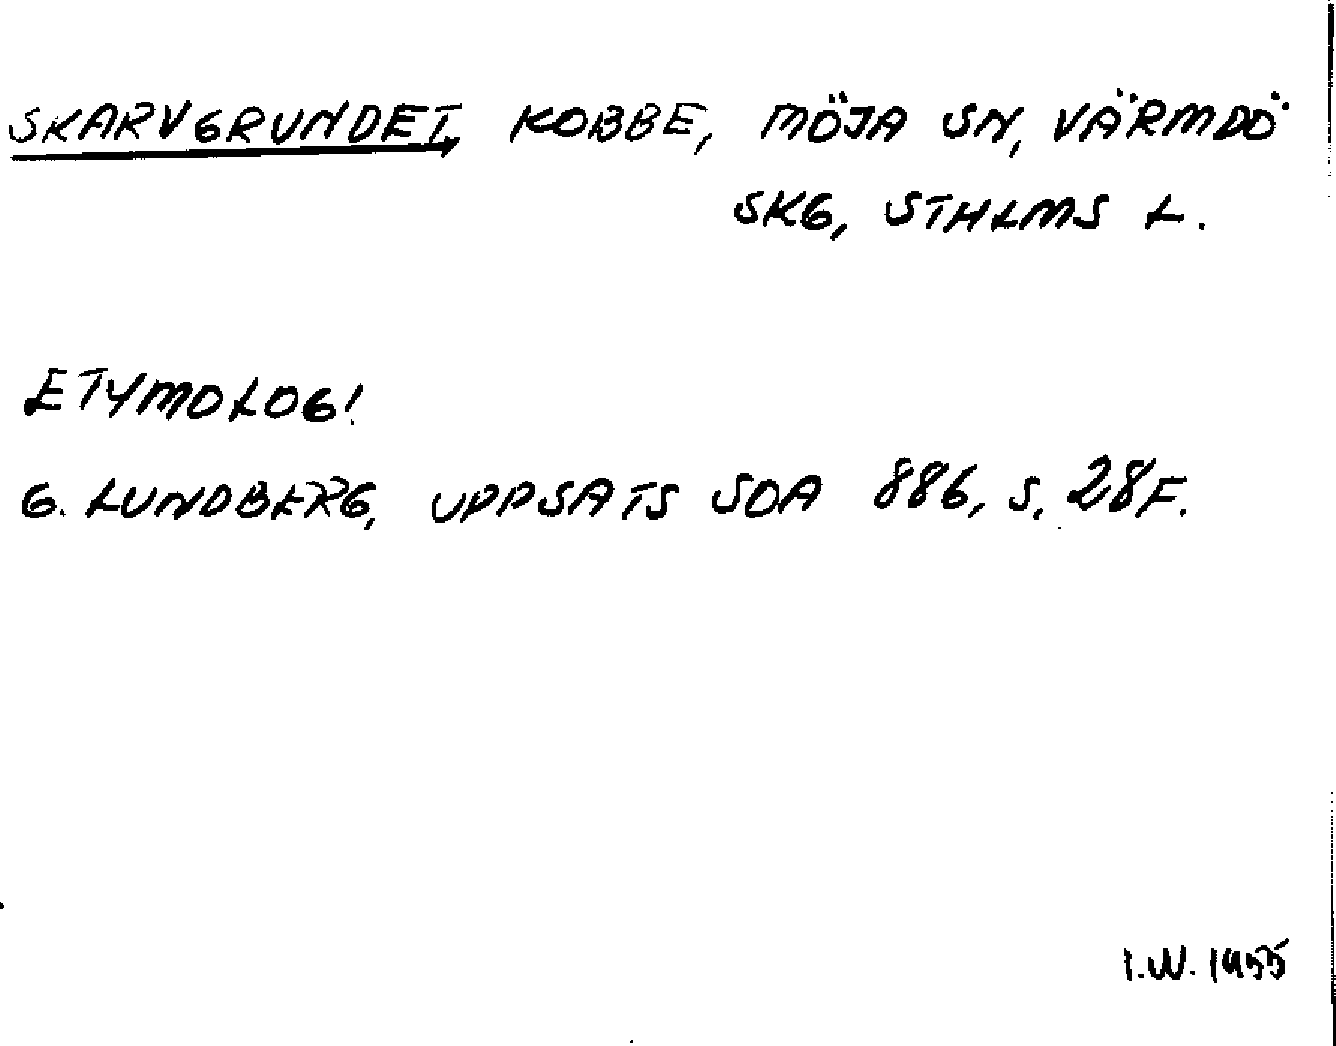 SKARVGRUNDET, KOBBE, MÖJA SN, VÄRMDÖ
SKG, STHLMS L.
ETYMOLOGI
G. LUNDBERG, UPPSATS SOA 886, S. 28F.
I.W. 1955